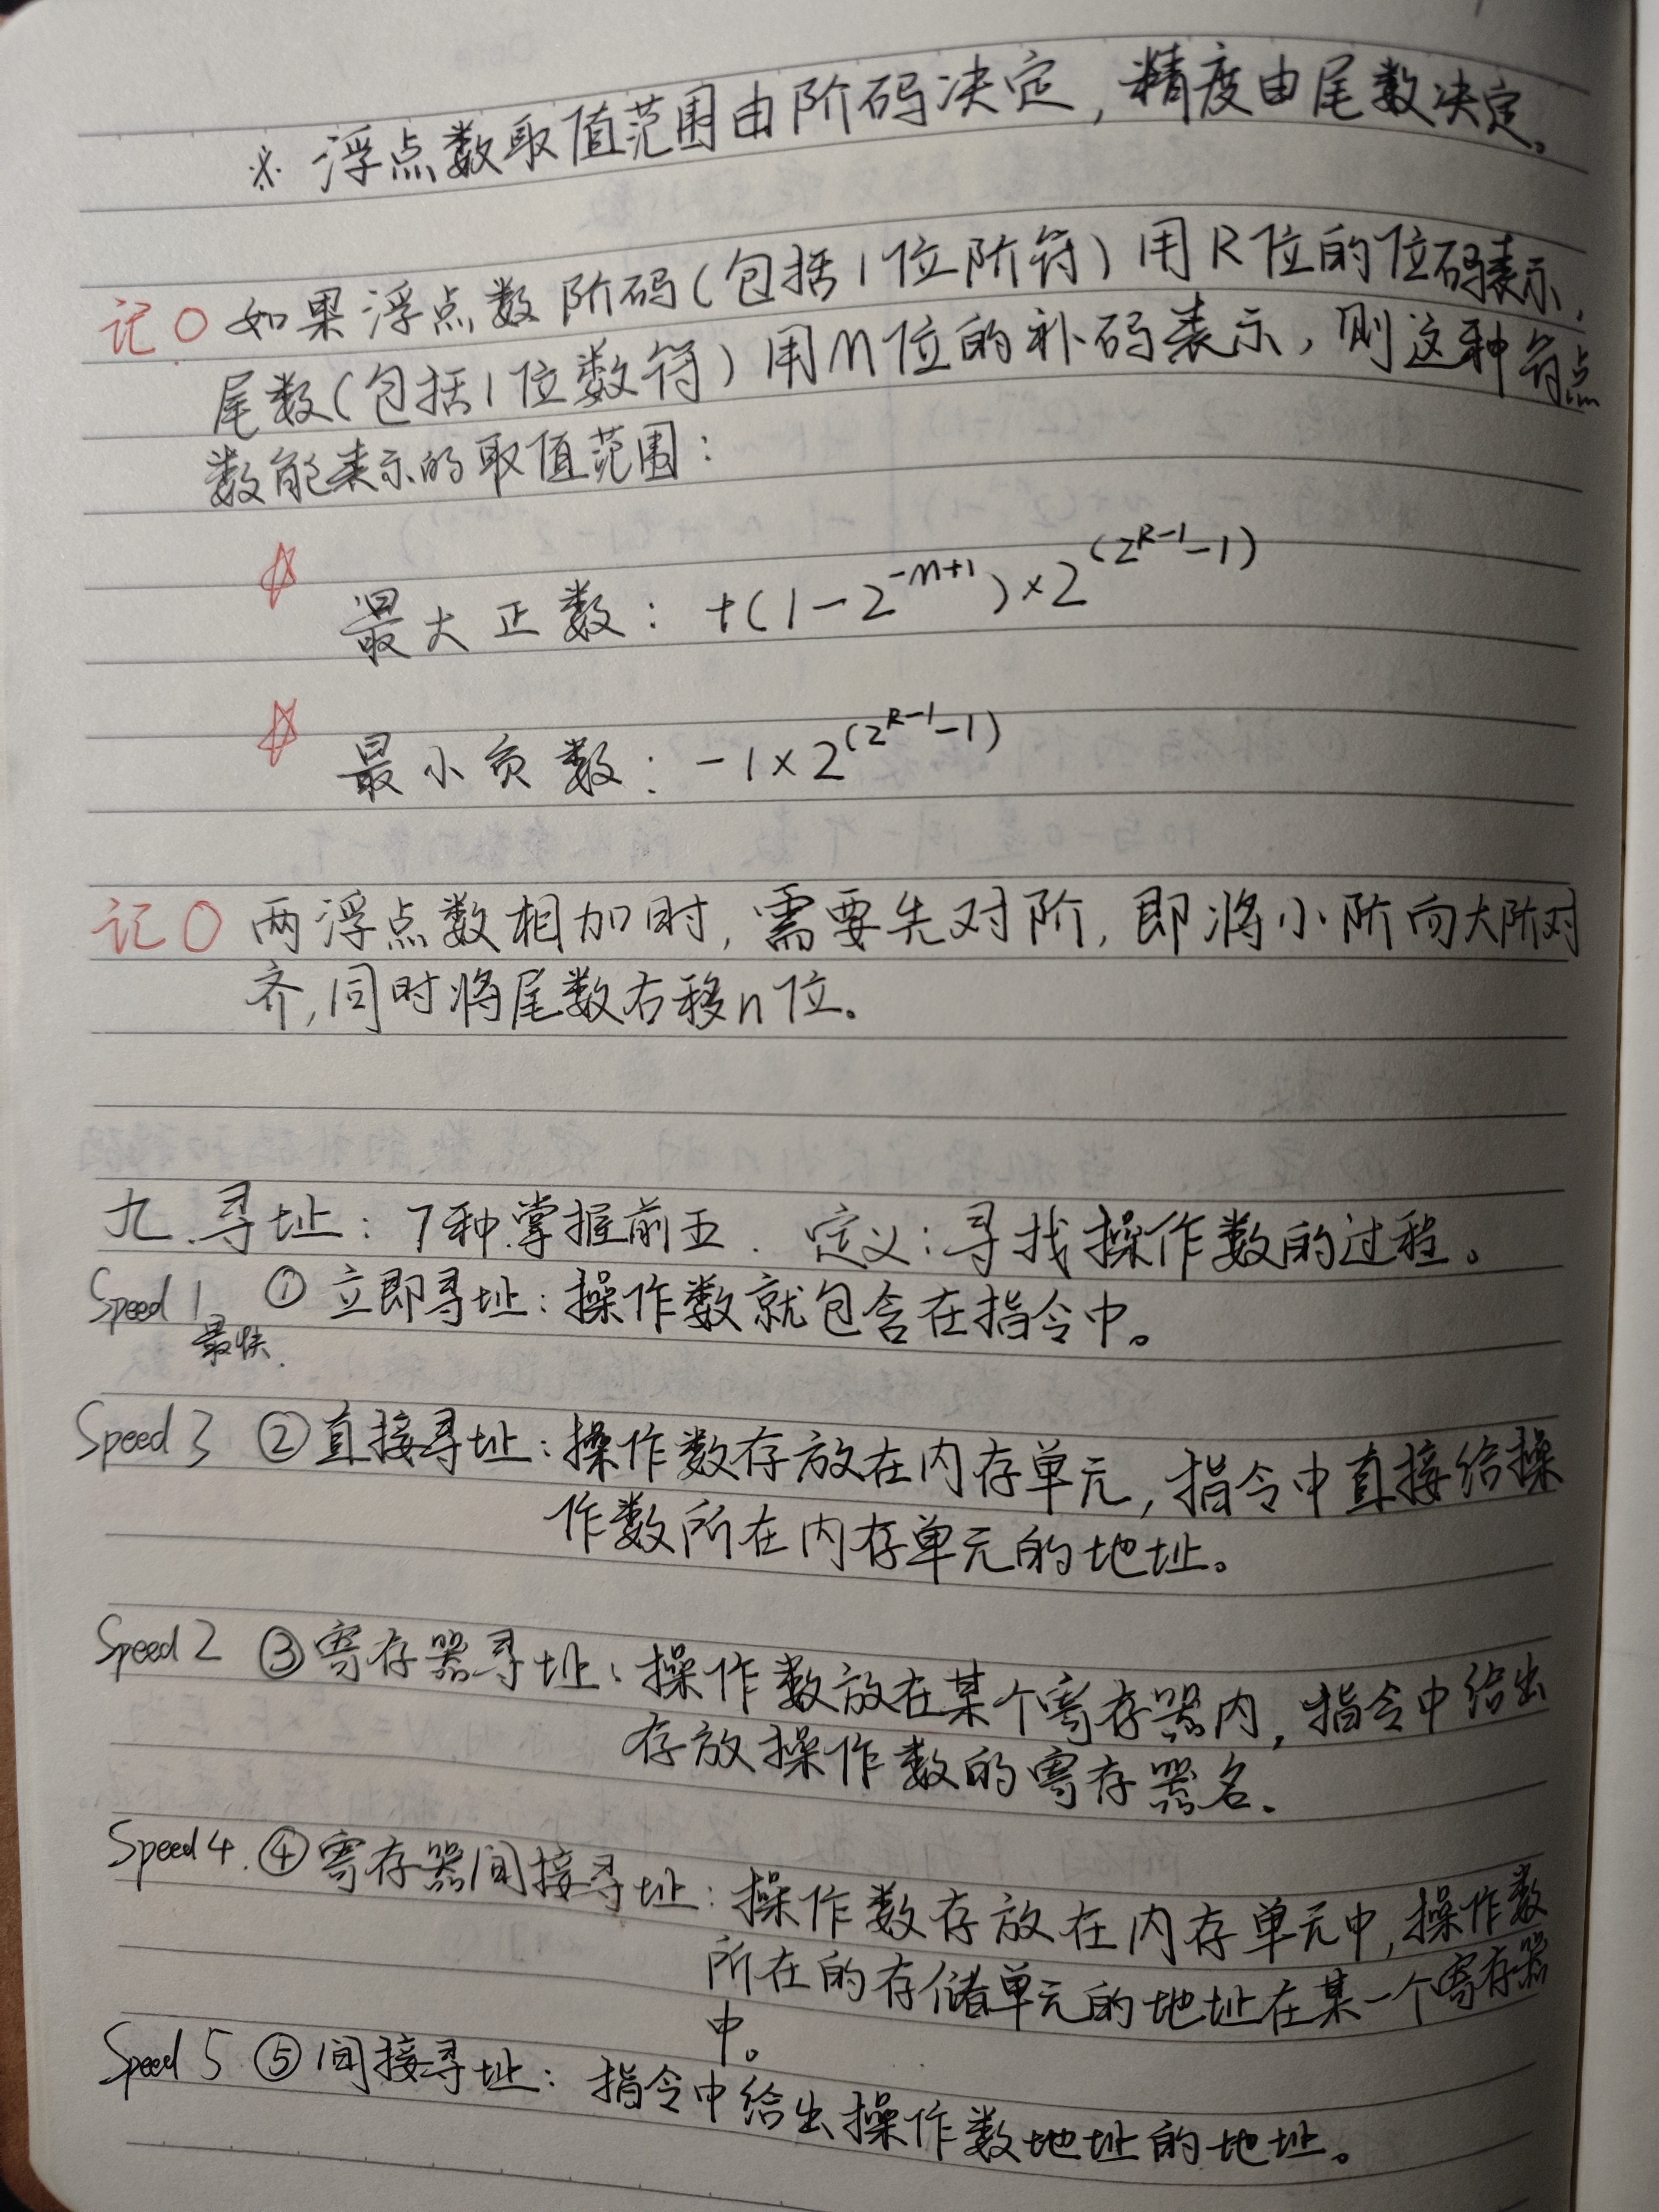 ※ 浮点数取值范围由阶码决定,精度由尾数决定。
记○ 如果浮点数阶码(包括1位阶符)用R位的位码表示,
尾数(包括1位数符)用M位的补码表示,则这种符点
数能表示的取值范围:
☆ 最大正数: +(1-2^{-M+1})×2^{(2^{R-1}-1)}
☆ 最小负数: -1×2^{(2^{R-1}-1)}
记○ 两浮点数相加时,需要先对阶,即将小阶向大阶对
齐,同时将尾数右移n位。
九.寻址:7种.掌握前五. 定义:寻找操作数的过程。
Speed 1. ① 立即寻址:操作数就包含在指令中。
最快.
Speed 3 ② 直接寻址:操作数存放在内存单元,指令中直接给操
作数所在内存单元的地址。
Speed 2 ③ 寄存器寻址:操作数放在某个寄存器内,指令中给出
存放操作数的寄存器名.
Speed 4. ④ 寄存器间接寻址:操作数存放在内存单元中,操作数
所在的存储单元的地址在某一个寄存器
中。
Speed 5 ⑤ 间接寻址:指令中给出操作数地址的地址。